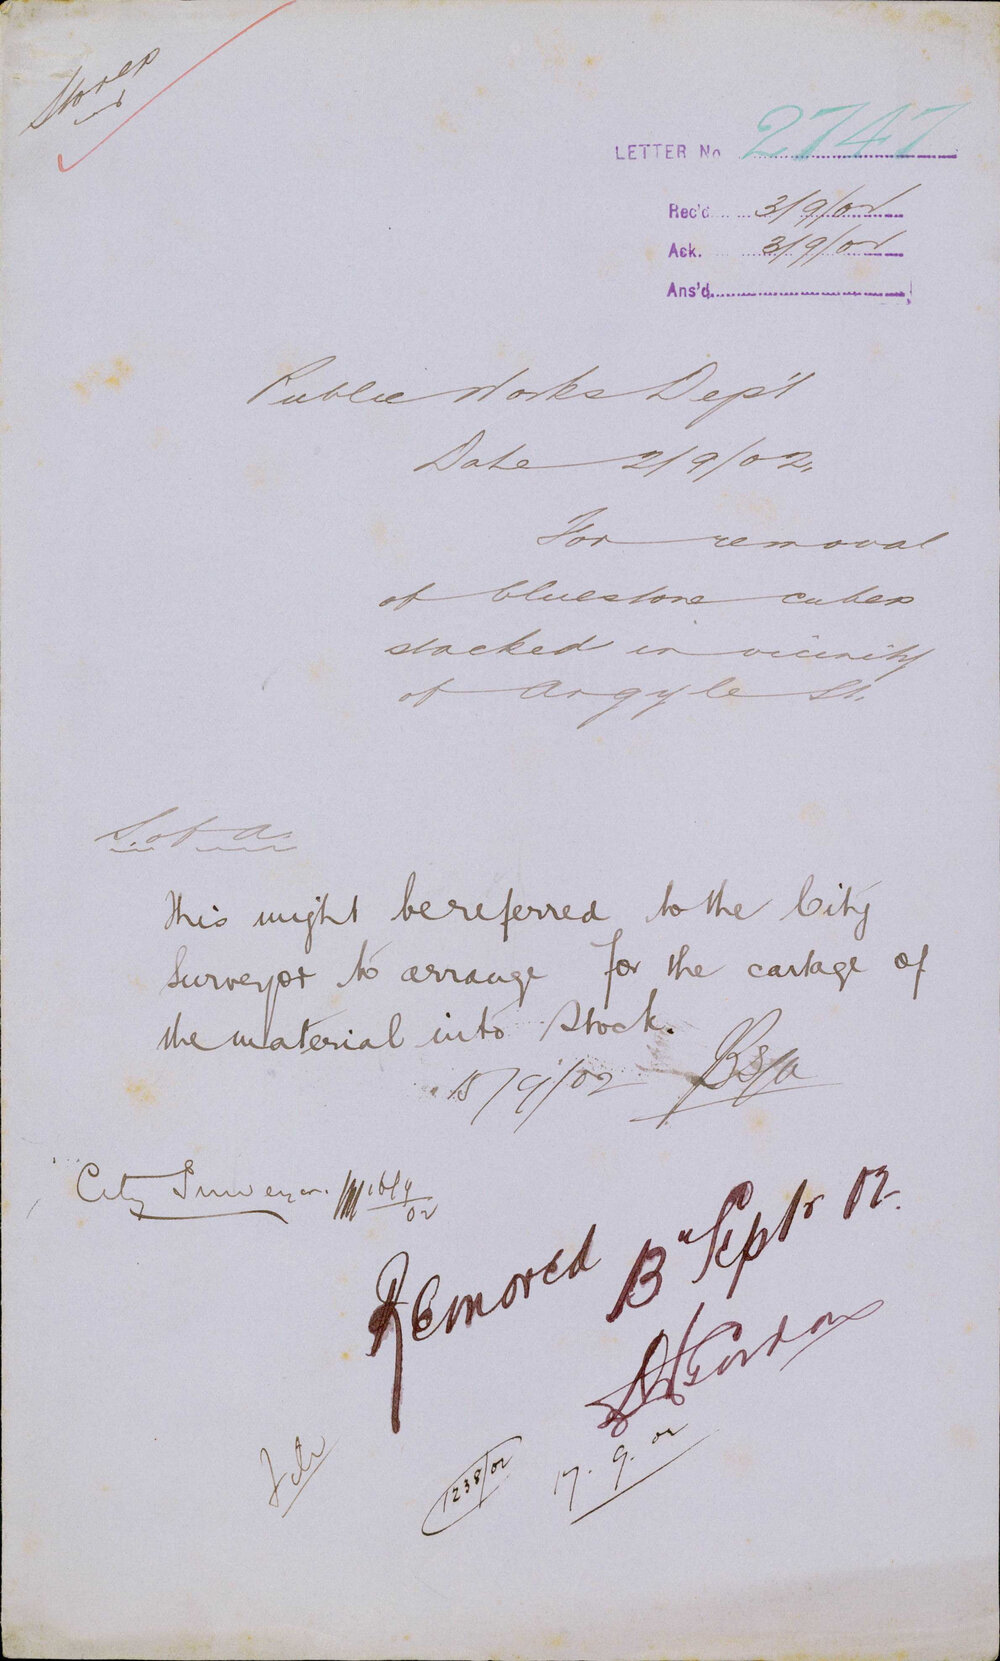 Stores
LETTER No 2747
Rec'd 3/9/02
Ack. 3/9/02
Ans'd
Public Works Dep't
Date 2/9/02.
For removal
of bluestone cubes
stacked in vicinity
of Argyle St.
S. of A.
This might be referred to the City
Surveyor to arrange for the cartage of
the material into Stock.
15/9/02
City Surveyor. 16/9/02
Removed 13" Septr 02.
Gordon
17.9.02
File
1238/02